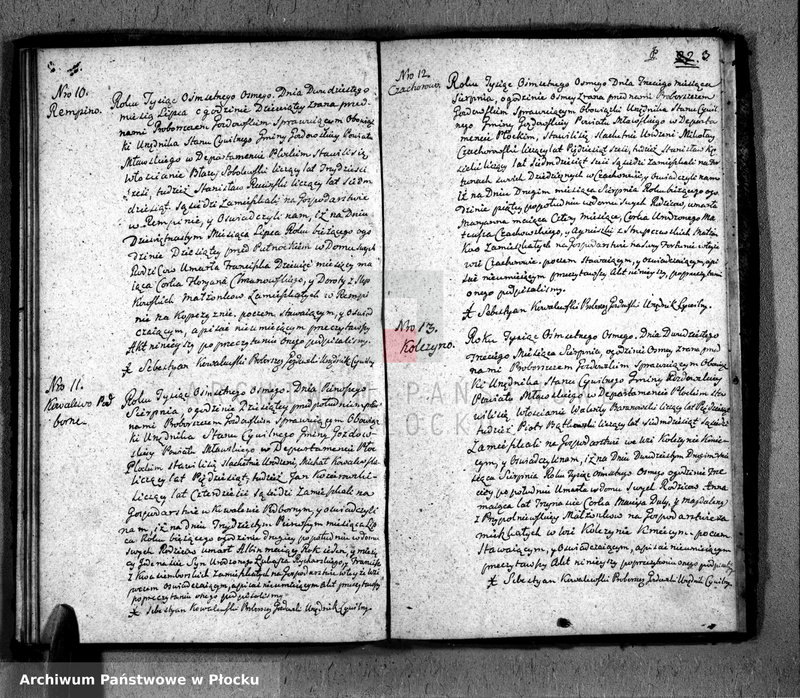 Nro 10.
Rempino.
Roku Tysiąc Ośmsetnego Osmego. Dnia Dwudziestego
miesią Lipca o godzinie Dziewiątey zrana przed
nami Proboszczem Gozdowskim Sprawuiącym Obowiąz
ki Urzędnika Stanu Cywilnego Gminy Gozdowskiy Powiatu
Mławskiego w Departamencie Płockim Stawili się
Włościanie Błażey liczący lat Trzydzieści
Sześć, tudzież Stanisław liczący lat Siedm
dziesiąt Sąsiedzi Zamieszkali na Gospodarstwie
w Rempinie, y Oświadczyli nam, iż na Dniu
Dziewiętnastym Miesiąca Lipca Roku bieżącego ogo
dzinie Dziesiątey przed Północkiem w Domu swych
Rodziców Umarła Franciszka Dziewięć miesięcy ma
iąca Corka Floryana y Doroty z
Małżonkow Zamieszkałych w Rempi
nie na poczem, stawaiący, y oświad
czaiącym, a pisać nieumieiącym przeczytawszy
Akt ninieyszy po przeczytaniu onego podpisaliśmy.
Sebestyan Kowalewski Proboszcz Urzędnik Cywilny
Nro 11.
Kowalewo Pod
borne.
Roku Tysiąc Ośmsetnego Osmego. Dnia Pierwszego
Sierpnia, o godzinie Dziesiątey przed południem przed
nami Proboszczem Gozdowskim Sprawuiącym Obowiąz
ki Urzędnika Stanu Cywilnego Gminy Gozdow
skiey Powiatu Mławskiego w Departamencie Pło
Płockim Stawili się Szlachetnie Urodzeni, Michał Kowalewski
liczący lat Pięćdziesiąt, tudzież Jan
liczący lat Czterdzieści Sąsiedzi Zamieszkali na
Gospodarstwie w Kowalewie Podbornym, y oświadczyli
nam, iż na Dniu Trzydziestym Pierwszym miesiąca Lip
ca Roku bieżącego ogodzinie drugiey popołudniu w domu
swych Rodziców umarł Albin maiący Rok ieden, y miesią
cy Syn Urodzonego y Franciszki
Zamieszkałych na Gospodarstwie w teyże wsi
poczem oświadczaiącym, a pisać nieumieiącym Akt ninieyszy przeczytawszy
po przeczytaniu onego podpisaliśmy
Sebestyan Kowalewski Proboszcz Urzędnik Cywilny
3
Nro 12.
Czachorowo.
Roku Tysiąc Ośmsetnego Osmego Dnia Trzeciego miesiąca
Sierpnia, o godzinie osmey zrana przed nami Proboszczem
Gozdowskim Sprawuiącym Obowiązki Urzędnika Stanu Cywil
nego Gminy Gozdowskiey Powiatu Mławskiego w Departa
mencie Płockim, Stawili się Szlachetnie Urodzeni Mikołay
Czachorowski liczący lat Pięćdziesiąt sześć, tudzież Stanisław Ko
liczący lat Siedmdziesiąt sześć Sąsiedzi Zamieszkali na For
tunach swoich Dziedzicznych w Czachorowie, y Oświadczyli nam
iż na Dniu Drugim miesiąca Sierpnia Roku bieżącego ogo
dzinie piątey popołudniu w domu swych Rodziców, umarła
Maryanna maiąca Cztery miesiące, Corka Urodzonego Ma
teusza Czachorowskiego, y Agnieszki z Małżon
kow Zamieszkałych na Gospodarstwie na swey Fortunie w teyże
wsi Czachorowie. poczem Stawaiącym, y oświadczaiącym, a pi
sać nieumieiącym przeczytawszy Akt ninieyszy, po przeczytaniu
onego podpisaliśmy.
Sebestyan Kowalewski Proboszcz Urzędnik Cywilny.
Nro 13.
Kolczyno.
Roku Tysiąc Ośmsetnego Osmego. Dnia Dwudziestego
Trzeciego Miesiąca Sierpnia, ogodzinie Osmey zrana przed
nami Proboszczem Gozdowskim Sprawuiącym Obowiąz
ki Urzędnika Stanu Cywilnego Gminy Gozdowskiey
Powiatu Mławskiego w Departamencie Płockim Sta
wili się Włościanie Walenty Baranowski liczący lat Pięćdziesiąt
tudzież Piotr Bątkowski liczący lat Siedmdziesiąt Sąsiedzi
Zamieszkali na Gospodarstwie we wsi Kolczynie
cym, y Oświadczyli nam, iż na Dniu Dwudziestym Drugim mie
siąca Sierpnia Roku Tysiąc Ośmsetnego Osmego ogodzinie Trze
ciey po południu Umarła w domu swych Rodziców Anna
maiąca lat Trzy Corka Macieja Duły, y Magdaleny
z Małżonkow na Gospodarstwie za
mieszkałych w wsi Kolczynie Kmiecym. poczem
Stawaiącym, y Oświadczaiącym, a pisać nieumieiącym
przeczytawszy Akt ninieyszy po przeczytaniu onego podpisaliśmy
Sebestyan Kowalewski Proboszcz Urzędnik Cywilny.
ARCHIWUM PAŃSTWOWE
W PŁOCKU
Archiwum Państwowe w Płocku